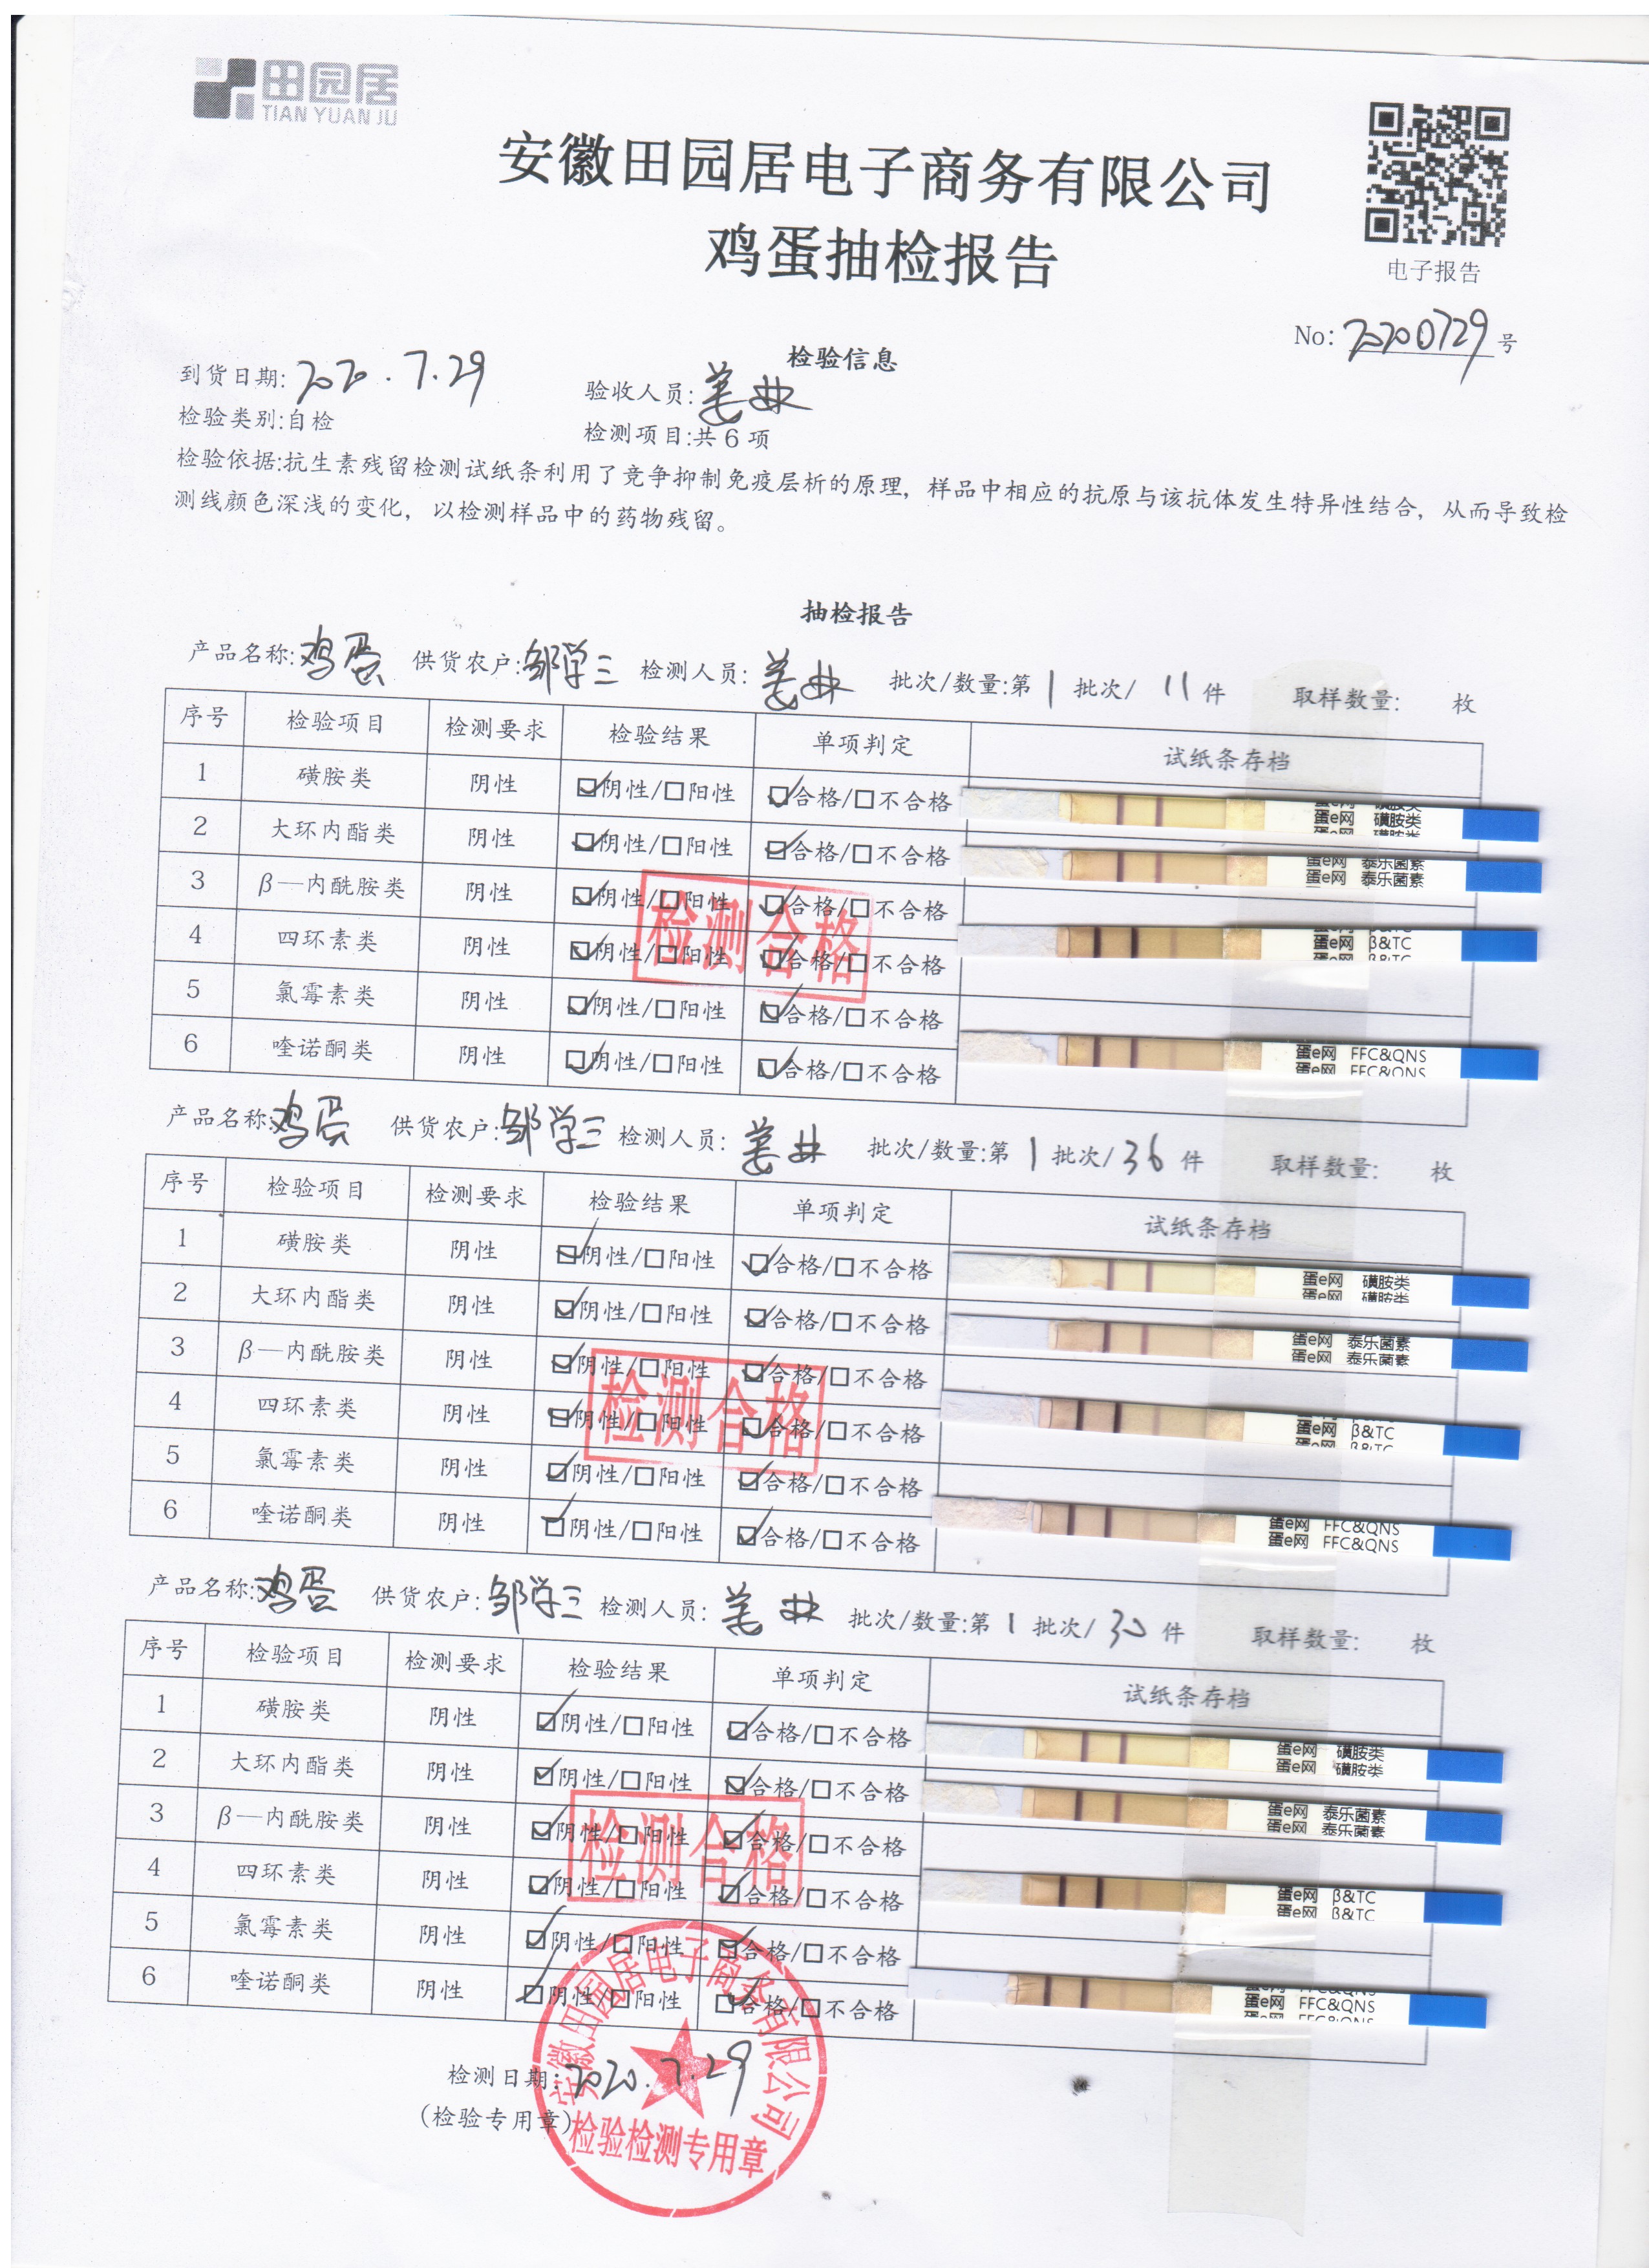 田园居
TIAN YUAN JU
安徽田园居电子商务有限公司
鸡蛋抽检报告
电子报告
No: 20200729 号
检验信息
到货日期: 2020.7.29 验收人员: 姜
检验类别:自检 检测项目:共 6 项
检验依据:抗生素残留检测试纸条利用了竞争抑制免疫层析的原理，样品中相应的抗原与该抗体发生特异性结合，从而导致检
测线颜色深浅的变化，以检测样品中的药物残留。
抽检报告
产品名称:鸡蛋 供货农户:邹学三 检测人员:姜 批次/数量:第 1 批次/ 11 件 取样数量: 枚
序号 检验项目 检测要求 检验结果 单项判定 试纸条存档
1 磺胺类 阴性 ☑阴性/□阳性 ☑合格/□不合格 蛋e网 磺胺类
2 大环内酯类 阴性 ☑阴性/□阳性 ☑合格/□不合格 蛋e网 泰乐菌素
3 β—内酰胺类 阴性 ☑阴性/□阳性 ☑合格/□不合格
4 四环素类 阴性 ☑阴性/□阳性 ☑合格/□不合格 蛋e网 β&TC
5 氯霉素类 阴性 ☑阴性/□阳性 ☑合格/□不合格
6 喹诺酮类 阴性 ☑阴性/□阳性 ☑合格/□不合格 蛋e网 FFC&QNS
检测合格
产品名称:鸡蛋 供货农户:邹学三 检测人员:姜 批次/数量:第 1 批次/ 36 件 取样数量: 枚
序号 检验项目 检测要求 检验结果 单项判定 试纸条存档
1 磺胺类 阴性 ☑阴性/□阳性 ☑合格/□不合格 蛋e网 磺胺类
2 大环内酯类 阴性 ☑阴性/□阳性 ☑合格/□不合格 蛋e网 泰乐菌素
3 β—内酰胺类 阴性 ☑阴性/□阳性 ☑合格/□不合格
4 四环素类 阴性 ☑阴性/□阳性 ☑合格/□不合格 蛋e网 β&TC
5 氯霉素类 阴性 ☑阴性/□阳性 ☑合格/□不合格
6 喹诺酮类 阴性 ☑阴性/□阳性 ☑合格/□不合格 蛋e网 FFC&QNS
检测合格
产品名称:鸡蛋 供货农户:邹学三 检测人员:姜 批次/数量:第 1 批次/ 30 件 取样数量: 枚
序号 检验项目 检测要求 检验结果 单项判定 试纸条存档
1 磺胺类 阴性 ☑阴性/□阳性 ☑合格/□不合格 蛋e网 磺胺类
2 大环内酯类 阴性 ☑阴性/□阳性 ☑合格/□不合格 蛋e网 泰乐菌素
3 β—内酰胺类 阴性 ☑阴性/□阳性 ☑合格/□不合格
4 四环素类 阴性 ☑阴性/□阳性 ☑合格/□不合格 蛋e网 β&TC
5 氯霉素类 阴性 ☑阴性/□阳性 ☑合格/□不合格
6 喹诺酮类 阴性 ☑阴性/□阳性 ☑合格/□不合格 蛋e网 FFC&QNS
检测合格
检测日期: 2020.7.29
（检验专用章）
安徽田园居电子商务有限公司
检验检测专用章